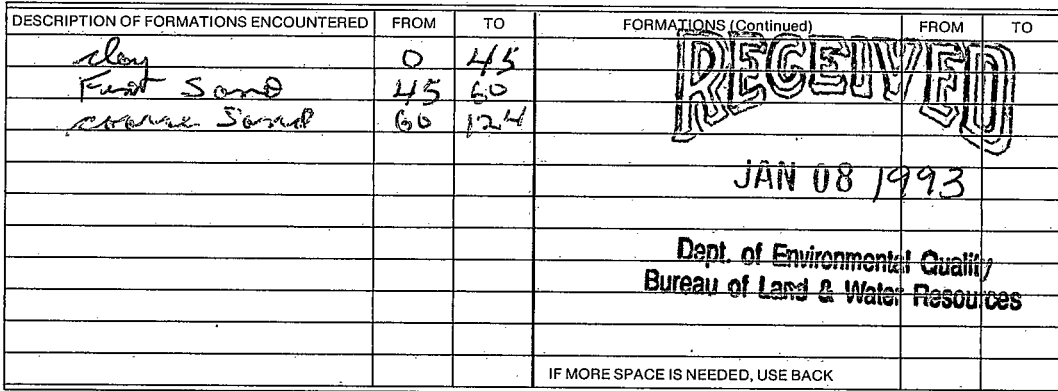 DESCRIPTION OF FORMATIONS ENCOUNTERED FROM TO FORMATIONS (Continued) FROM TO
clay 0 45
Sand 45 60
coarse Sand 60 124
RECEIVED
JAN 08 1993
Dept. of Environmental Quality
Bureau of Land & Water Resources
IF MORE SPACE IS NEEDED, USE BACK